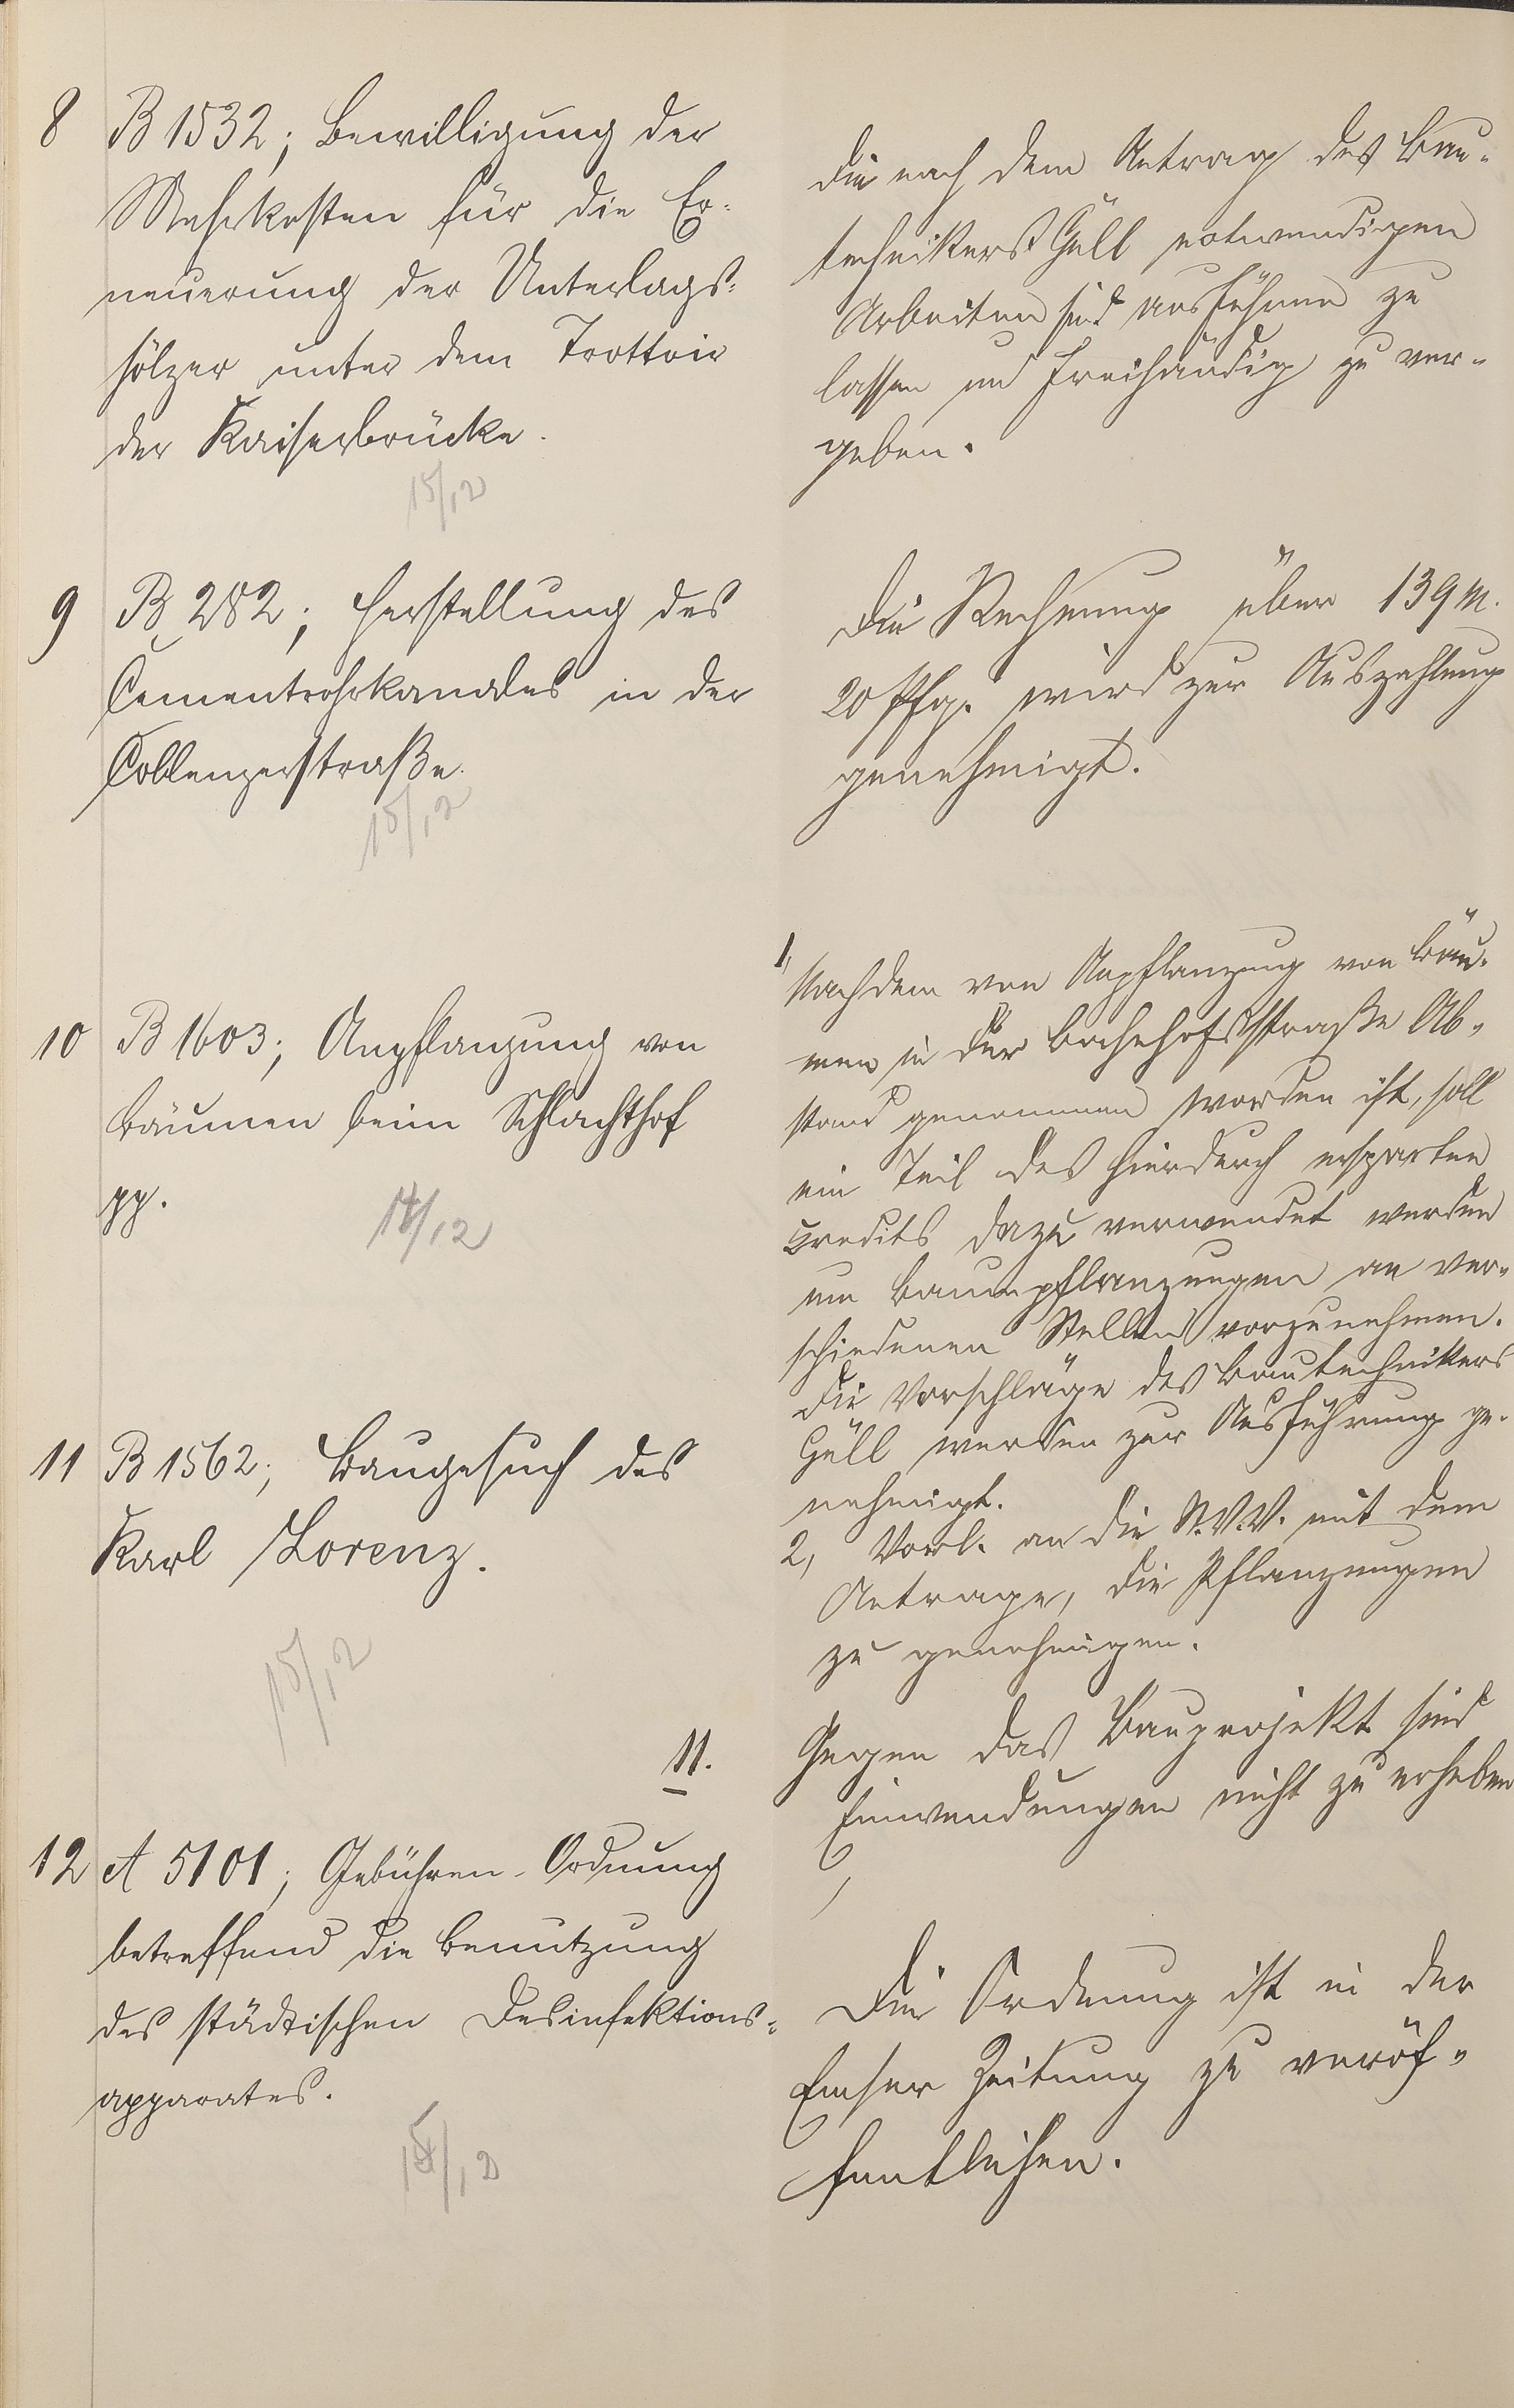 8 B 1532; Bewilligung der
Mehrkosten für die Er-
neuerung der Unterlags-
hölzer unter dem Trottoir
der Kaiserbrücke.
15/12
Die nach dem Antrag des Bau-
technikers Güll notwendigen
Arbeiten sind ausführen zu
lassen und freihändig zu ver-
geben.
9 B 282; Herstellung des
Cementrohrkanales in der
Coblenzerstraße.
15/12
Die Rechnung über 139 M.
20 Pfg. wird zur Auszahlung
genehmigt.
10 B 1603; Anpflanzung von
Bäumen beim Schlachthof
pp.
14/12
1, Nachdem von Anpflanzung von Bäu-
men in der Bahnhofsstraße Ab-
stand genommen worden ist, soll
ein Teil des hierdurch ersparten
Credits dazu verwendet werden
um Baumpflanzungen an ver-
schiedenen Stellen vorzunehmen.
Die Vorschläge des Bautechnikers
Güll werden zur Ausführung ge-
nehmigt.
2, Vorl. an die St.V.V. mit dem
Antrage, die Pflanzungen
zu genehmigen.
11 B 1562; Baugesuch des
Karl Lorenz.
15/12
11. Gegen das Bauprojekt sind
Einwendungen nicht zu erheben
12 A 5101; Gebühren-Ordnung
betreffend die Benutzung
des städtischen Desinfektions-
apparates.
15/12
Die Ordnung ist in der
Emser Zeitung zu veröf-
fentlichen.